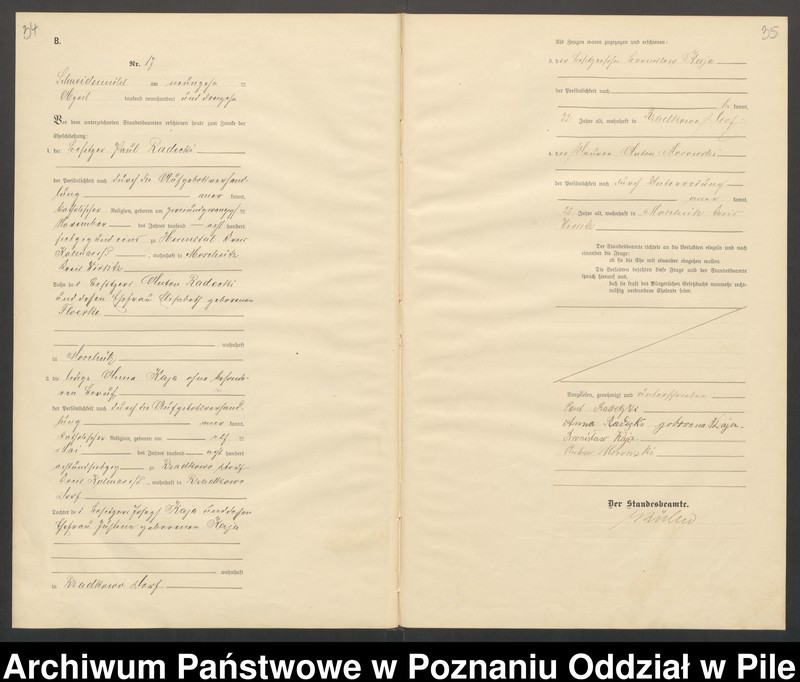 34
B.
Nr. 17
Schneidemühl am neunzehn ten
April tausend neunhundert und dreizehn
Vor dem unterzeichneten Standesbeamten erschienen heute zum Zwecke der
Eheschließung:
1. der Besitzer Paul Radecki
der Persönlichkeit nach durch die Aufgebotsverhand-
lung aner kannt,
katholischer Religion, geboren am zweiundzwanzigsten
November des Jahres tausend acht hundert
siebzig und eins zu Kreis
Kolmar i/P. , wohnhaft in Moschütz
Kreis Wirsitz
Sohn des Besitzers Anton Radecki
und dessen Ehefrau Elisabeth geborenen
wohnhaft
in Moschütz
2. die ledige Anna Kaja ohne besonde-
ren Beruf
der Persönlichkeit nach durch die Aufgebotsverhand-
lung aner kannt,
katholischer Religion, geboren am elf ten
Mai des Jahres tausend acht hundert
achtundsiebzig zu Bradkowo Dorf
Kreis Kolmar i/P. , wohnhaft in Bradkowo
Dorf
Tochter des Besitzers Josef Kaja und dessen
Ehefrau Justina geborenen Kaja
wohnhaft
in Bradkowo Dorf
35
Als Zeugen waren zugezogen und erschienen:
3. der Besitzersohn Bronislaus Kaja
der Persönlichkeit nach
be kannt,
22 Jahre alt, wohnhaft in Bradkowo Dorf
4. der Maurer Anton
der Persönlichkeit nach durch Unterredung
aner kannt,
Jahre alt, wohnhaft in Moschütz Kreis
Wirsitz
Der Standesbeamte richtete an die Verlobten einzeln und nach
einander die Frage:
ob sie die Ehe mit einander eingehen wollen.
Die Verlobten bejahten diese Frage und der Standesbeamte
sprach hierauf aus,
daß sie kraft des Bürgerlichen Gesetzbuchs nunmehr recht-
mäßig verbundene Eheleute seien.
Vorgelesen, genehmigt und unterschrieben
Paul Radecki
Anna Radecka geborena Kaja
Bronisław Kaja
Anton
Der Standesbeamte.
Archiwum Państwowe w Poznaniu Oddział w Pile